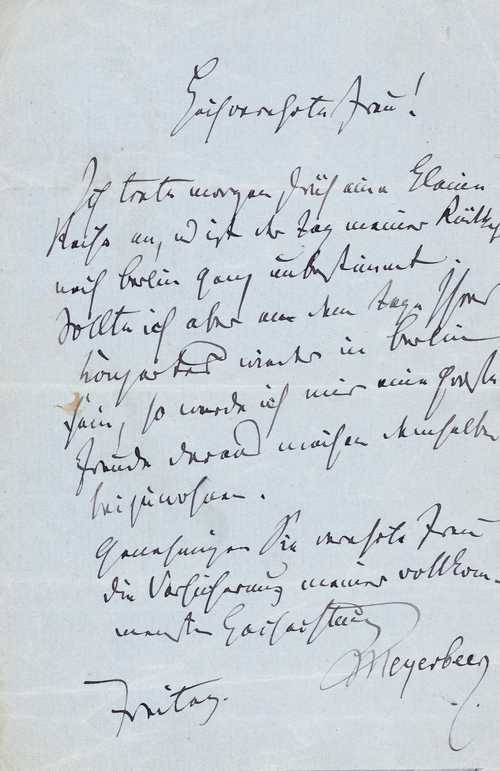 Hochverehrte Frau!
Ich trete morgen früh eine kleine
Reise an, u ist der Tag meiner Rückkehr
nach Berlin ganz unbestimmt.
Sollte ich aber an dem Tage Ihres
Konzertes wieder in Berlin
sein, so werde ich mir eine große
Freude daraus machen demselben
beizuwohnen.
Genehmigen Sie verehrte Frau
die Versicherung meiner vollkom-
mensten Hochachtung
Meyerbeer
Freitag.